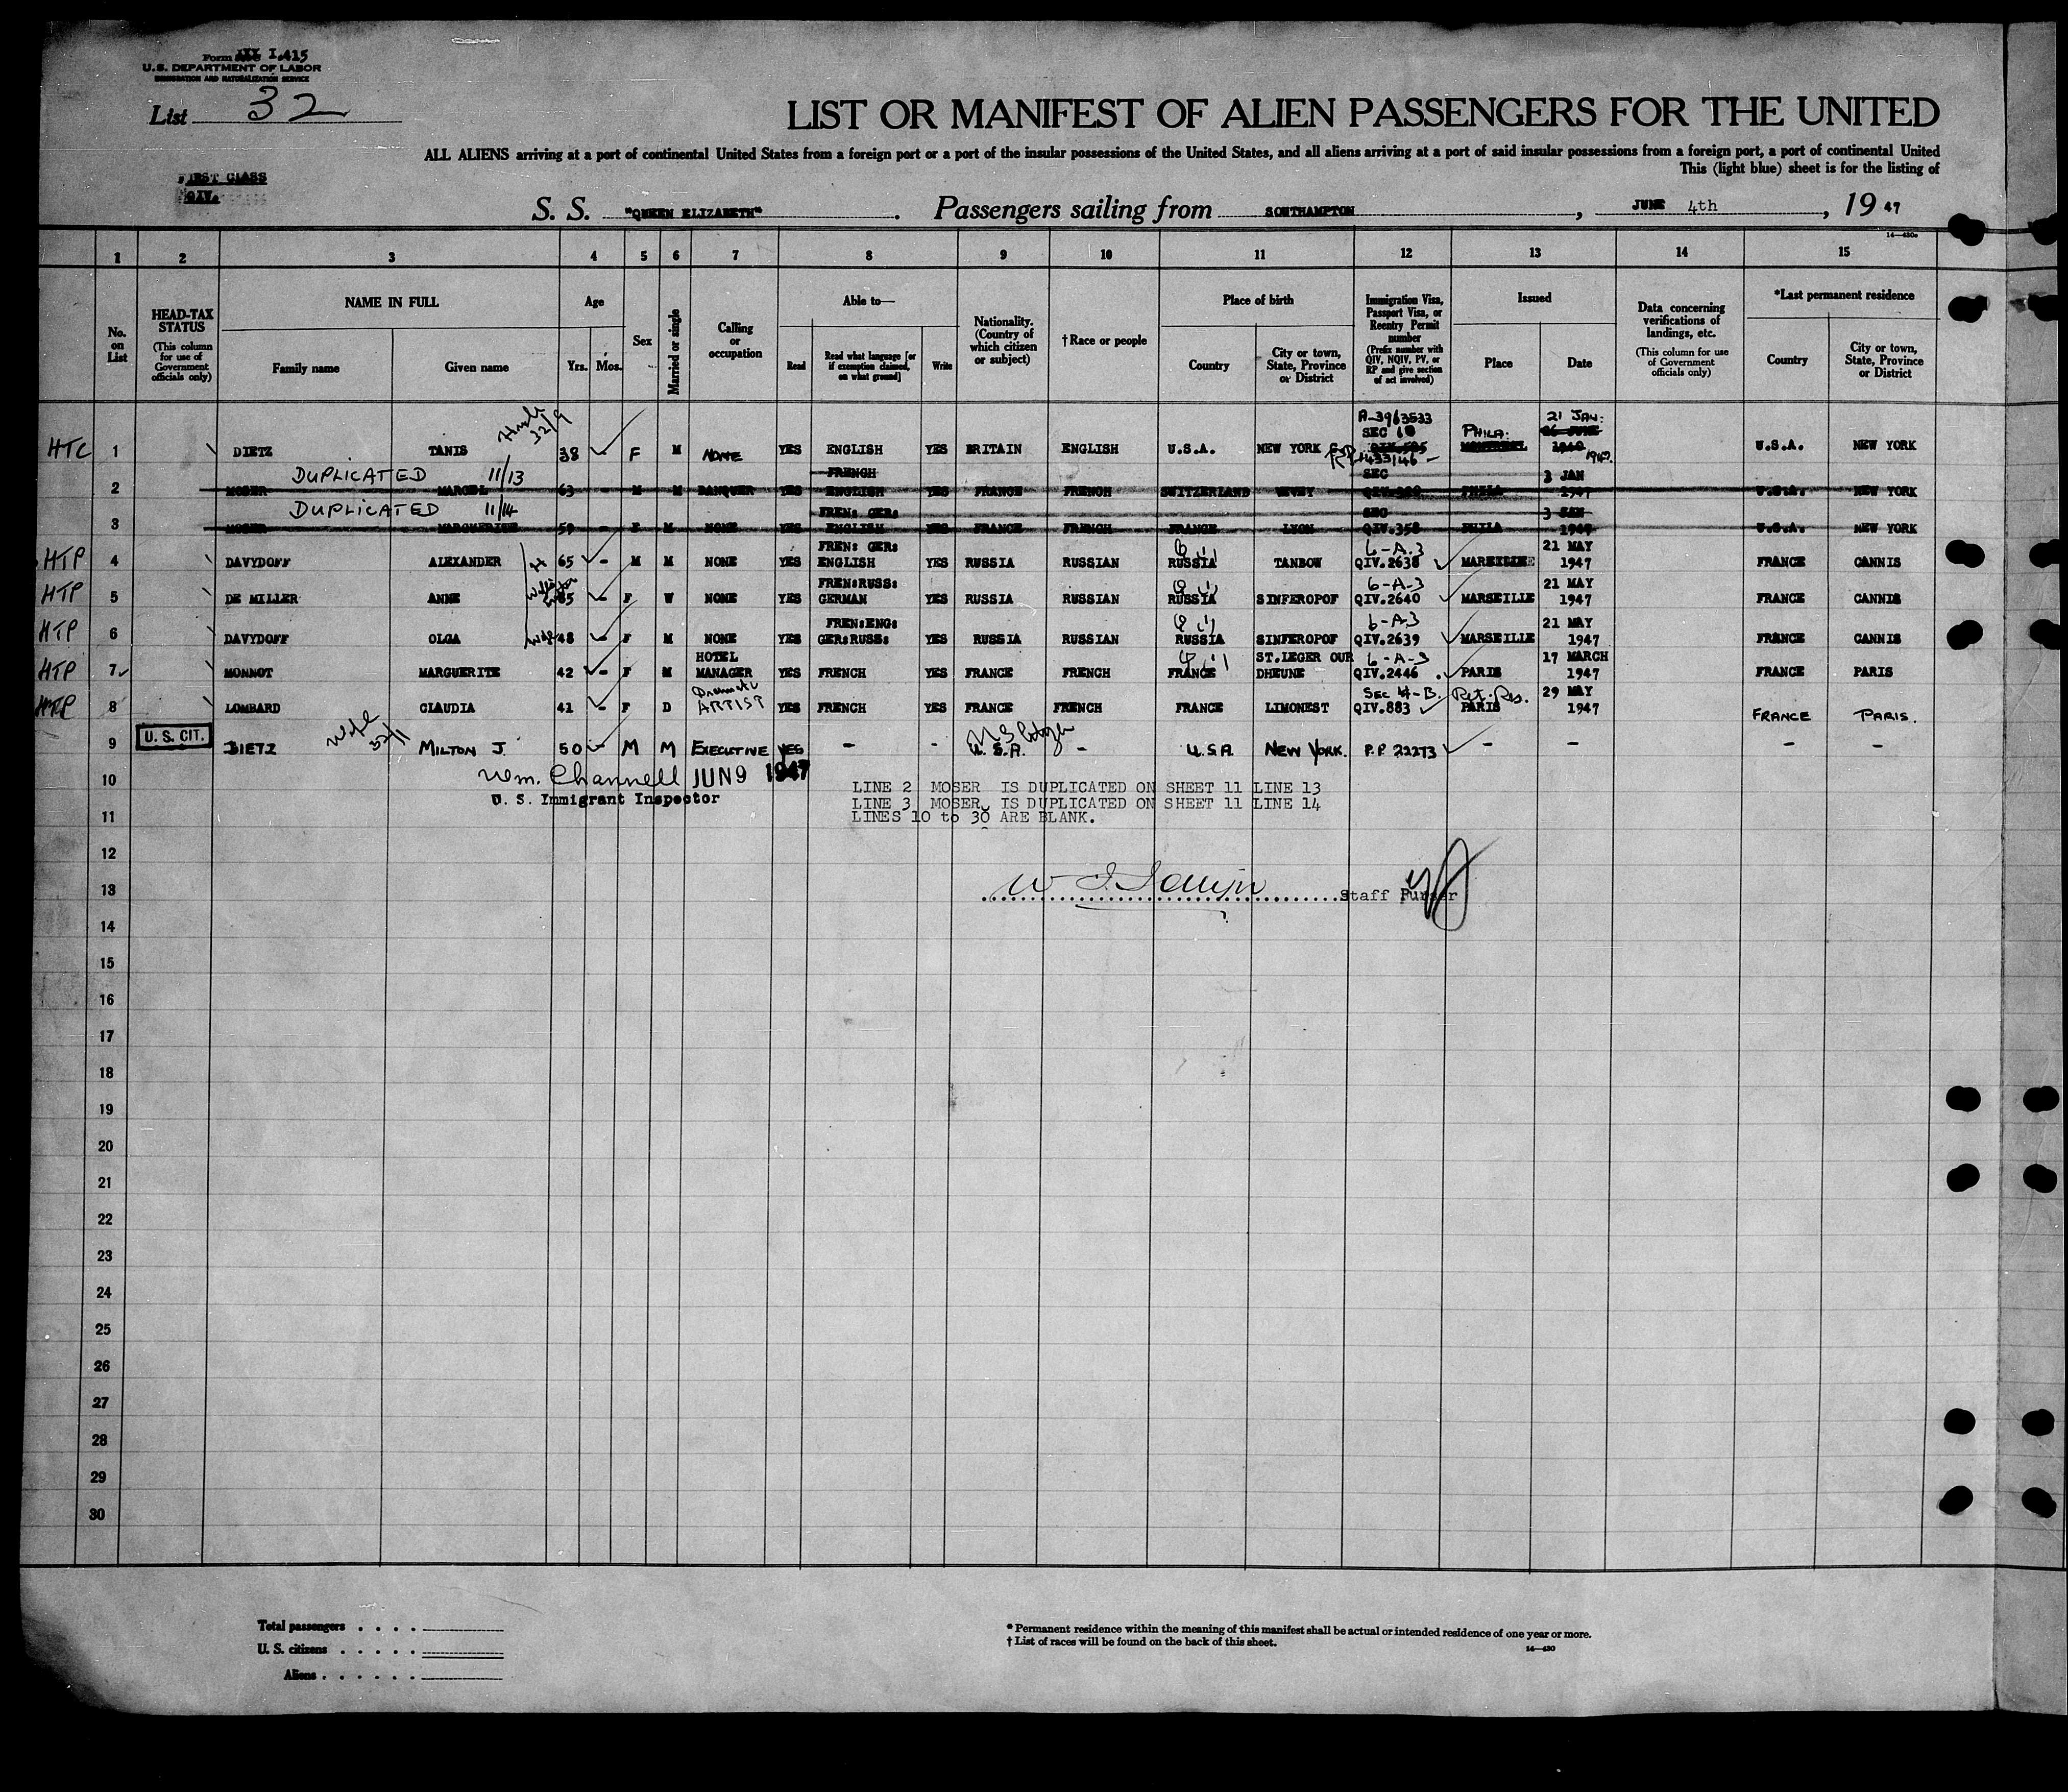 Form I.415
U.S. DEPARTMENT OF LABOR
IMMIGRATION AND NATURALIZATION SERVICE
List 32
LIST OR MANIFEST OF ALIEN PASSENGERS FOR THE UNITED
ALL ALIENS arriving at a port of continental United States from a foreign port or a port of the insular possessions of the United States, and all aliens arriving at a port of said insular possessions from a foreign port, a port of continental United
This (light blue) sheet is for the listing of
FIRST CLASS
QIV.
S. S. "QUEEN ELIZABETH". Passengers sailing from SOUTHAMPTON, JUNE 4th, 19 47
14—430a
1 2 3 4 5 6 7 8 9 10 11 12 13 14 15
No. on List
HEAD-TAX STATUS (This column for use of Government officials only)
NAME IN FULL
Family name Given name
Age
Yrs. Mos.
Sex
Married or single
Calling or occupation
Able to—
Read
Read what language [or if exemption claimed, on what ground]
Write
Nationality. (Country of which citizen or subject)
†Race or people
Place of birth
Country
City or town, State, Province or District
Immigration Visa, Passport Visa, or Reentry Permit number (Prefix number with QIV, NQIV, PV, or RP and give section of act involved)
Issued
Place Date
Data concerning verifications of landings, etc. (This column for use of Government officials only)
*Last permanent residence
Country
City or town, State, Province or District
A-3963533 21 JAN:
SEC PHILA:
HTC 1 DIETZ TANIS 32/9 38 F M NONE YES ENGLISH YES BRITAIN ENGLISH U.S.A. NEW YORK U.S.A. NEW YORK
1433146
DUPLICATED 11/13 FRENCH SEC 3 JAN
2 MOSER MARCEL 63 - M M BANQUER YES ENGLISH YES FRANCE FRENCH SWITZERLAND VEVEY PHILA 1947 U.S.A. NEW YORK
DUPLICATED 11/14 FREN: GER: SEC 3 JAN
3 MOSER MARGUERITE 59 - F M NONE YES ENGLISH YES FRANCE FRENCH FRANCE LYON QIV.358 PHILA 1947 U.S.A. NEW YORK
FREN: GER: 6-A.3 21 MAY
HTP 4 DAVYDOFF ALEXANDER 65 - M M NONE YES ENGLISH YES RUSSIA RUSSIAN RUSSIA TANBOW QIV.2638 MARSEILLE 1947 FRANCE CANNIS
FREN:RUSS: 6-A-3 21 MAY
HTP 5 DE MILLER ANNE - F W NONE YES GERMAN YES RUSSIA RUSSIAN RUSSIA SINFEROPOF QIV.2640 MARSEILLE 1947 FRANCE CANNIS
FREN:ENG: 6-A3 21 MAY
HTP 6 DAVYDOFF OLGA 48 - F M NONE YES GER:RUSS: YES RUSSIA RUSSIAN RUSSIA SINFEROPOF QIV.2639 MARSEILLE 1947 FRANCE CANNIS
HOTEL ST.LEGER OUR 6-A-3 17 MARCH
HTP 7 MONNOT MARGUERITE 42 - F M MANAGER YES FRENCH YES FRANCE FRENCH FRANCE DHEUNE QIV.2446 PARIS 1947 FRANCE PARIS
SEC 4-B. Ret. Res. 29 MAY
8 LOMBARD CLAUDIA 41 - F D ARTIST YES FRENCH YES FRANCE FRENCH FRANCE LIMONEST QIV.883 PARIS 1947 FRANCE PARIS.
U. S. CIT.
Wife 32/1
9 DIETZ MILTON J 50 - M M EXECUTIVE YES - - U. S. A. - U.S.A. NEW YORK. P.P. 22273 - - - -
10 Wm. Channell JUN 9 1947
U. S. Immigrant Inspector
LINE 2 MOSER IS DUPLICATED ON SHEET 11 LINE 13
LINE 3 MOSER IS DUPLICATED ON SHEET 11 LINE 14
11 LINES 10 to 30 ARE BLANK.
12
13 Staff Purser
14
15
16
17
18
19
20
21
22
23
24
25
26
27
28
29
30
Total passengers . . . .
U. S. citizens . . . . .
Aliens . . . . . .
* Permanent residence within the meaning of this manifest shall be actual or intended residence of one year or more.
† List of races will be found on the back of this sheet.
14—430